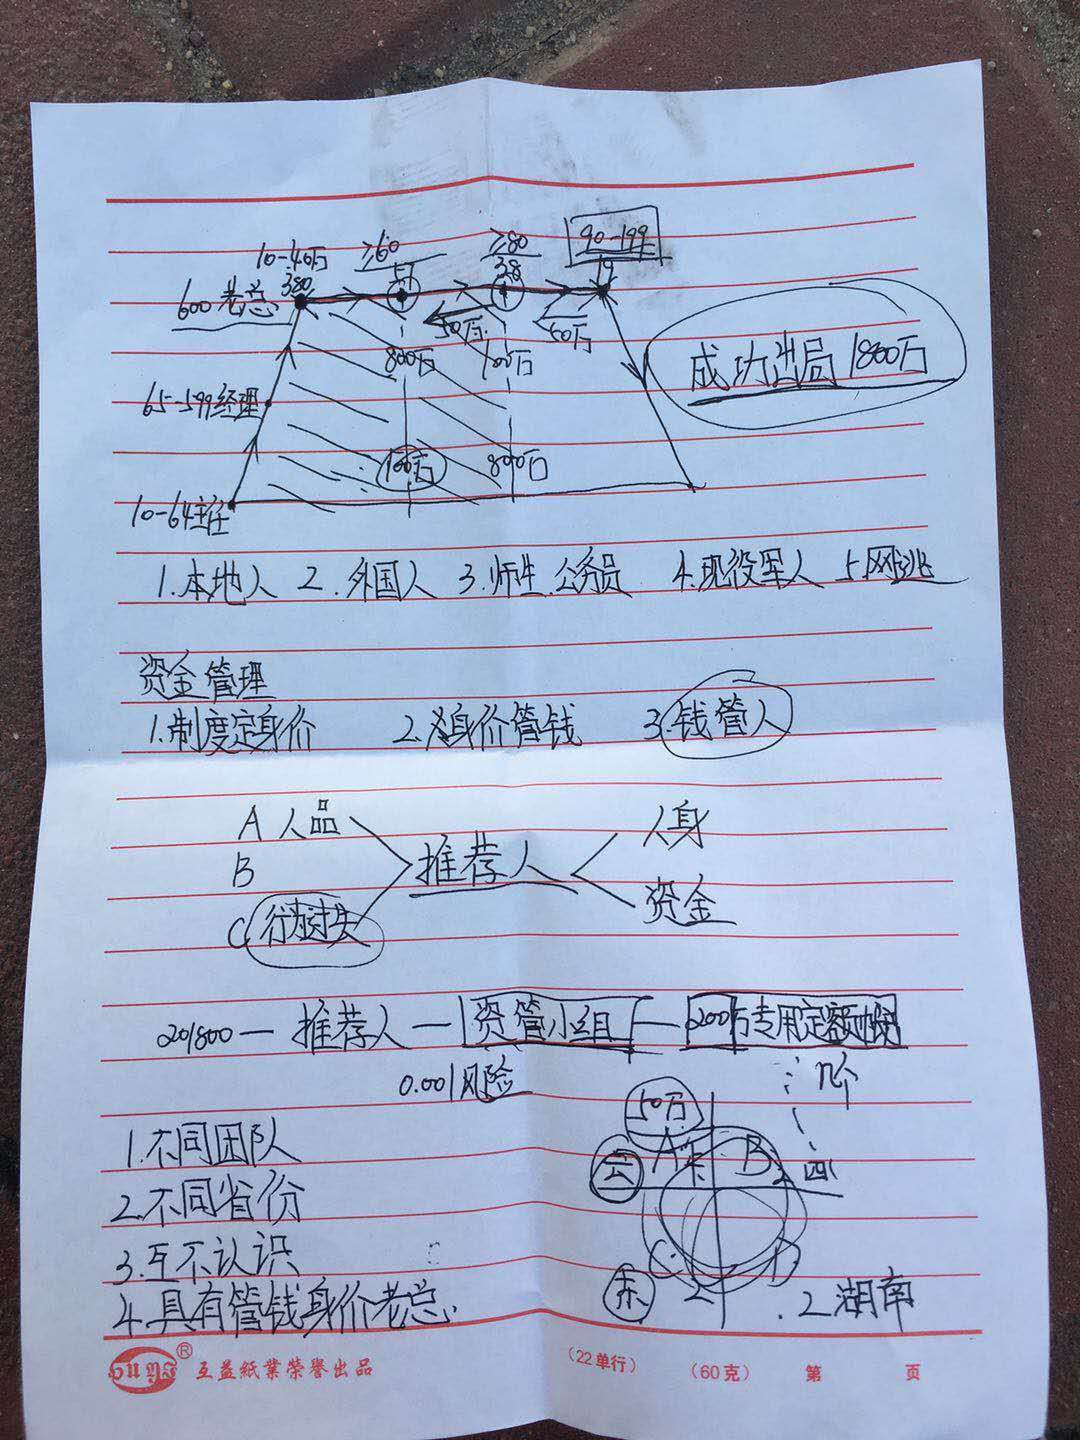 10-40万 ≥60 ≥80 90-199
600老总 380 57 38 19
50万 50万
800万 100万 成功出局1800万
65-599经理
100万 800万
10-64主任
1.本地人 2.外国人 3.师生.公务员 4.现役军人 5.网逃
资金管理
1.制度定身价 2.身价管钱 3.钱管人
A 人品 人身
B 推荐人
C 资金
201800—推荐人—资管小组—200万专用定额
0.001风险 几个
50万
1.不同团队 云 A卡 B 2 四川
2.不同省份
3.互不认识 C D
4.具有管钱身价老总. 东 2 .2湖南
® 互益紙業榮譽出品 (22单行) (60克) 第 页